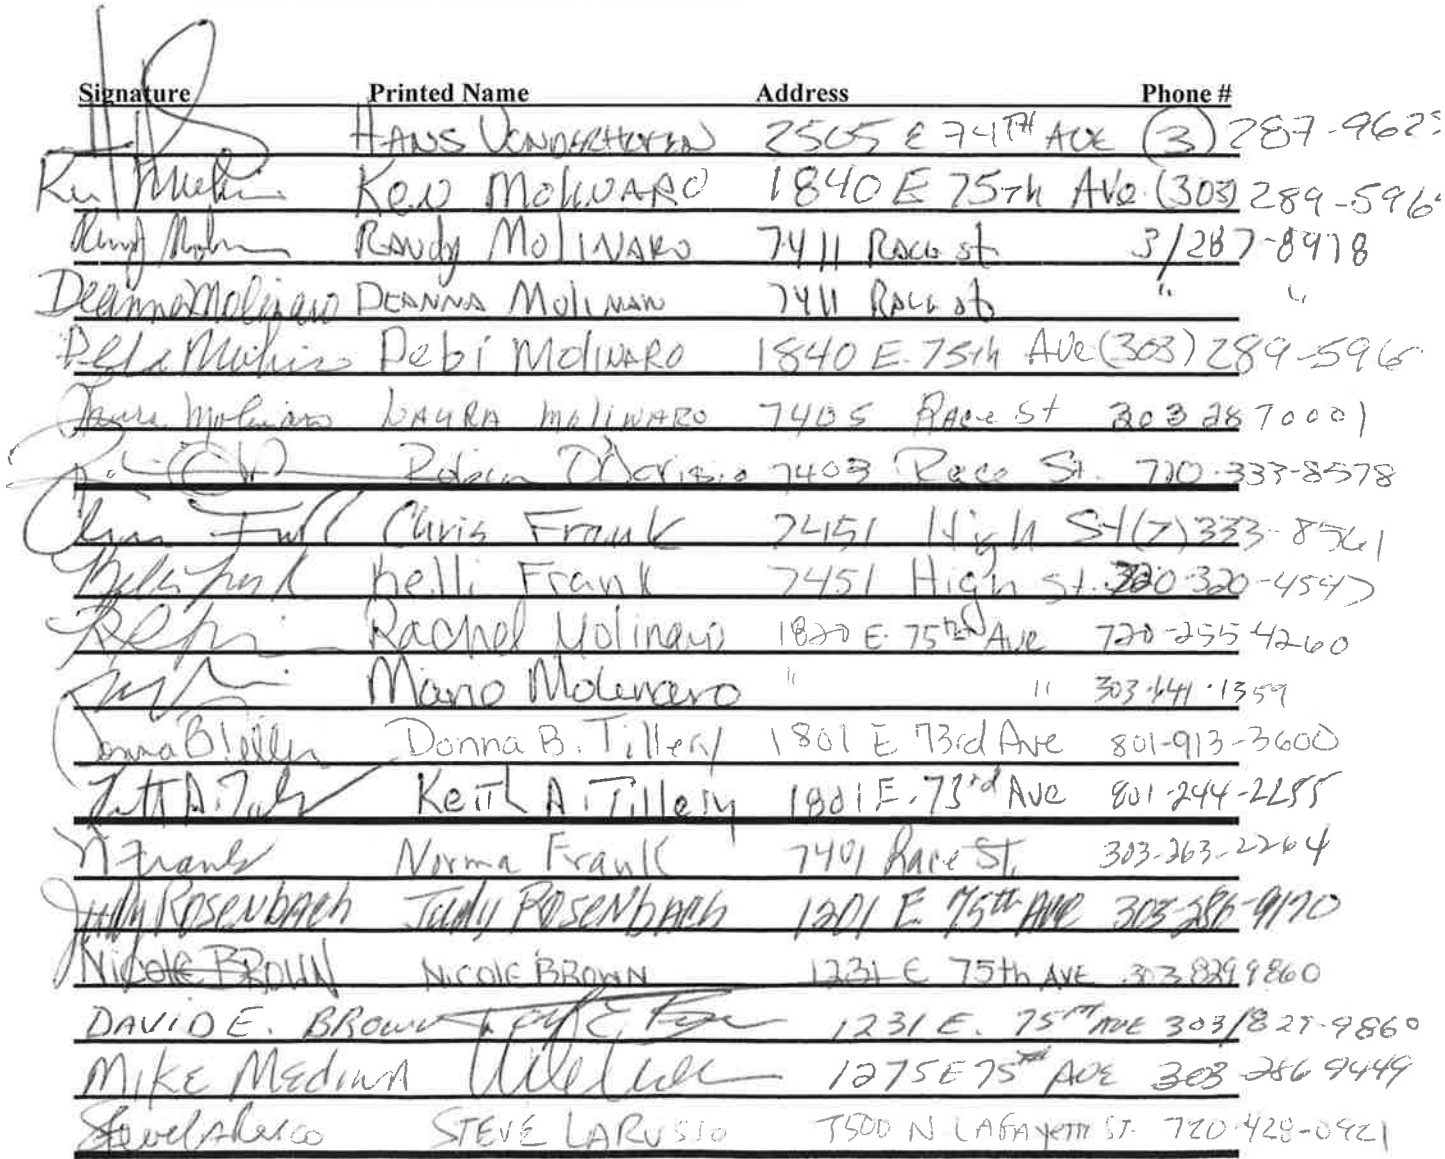 Signature Printed Name Address Phone #
HANS VONDERHOFEN 2505 E 74TH AVE (3) 287-962
Ken MOLINARO 1840 E 75th AVe. (303) 289-596
RANDY MOLINARO 7411 RACE st 3/287-8978
Deanna Molinaro DEANNA MOLINARO 7411 RACE st " "
Debi MOLINARO 1840 E. 75th AVe (303) 289-596
Laura Molinaro LAURA MOLINARO 7405 RACE St 303 287 0001
Robin 7403 Race St. 720-333-8578
Chris Frank 7451 High St (7) 333-8561
Kelli Frank 7451 High St. 720-320-4547
Rachel Molinaro 1820 E. 75th Ave 720-255-4260
Mario Molinaro " " 303-641-1359
Donna B Tillery Donna B. Tillery 1801 E 73rd Ave 801-913-3600
Keith A. Tillery 1801 E. 73rd Ave 801-244-2255
N Frank Norma Frank 7401 Race St. 303-263-2264
Judy Rosenbach Judy ROSENbACh 1201 E 75th AVE 303-286-9170
NICOLE BROWN NICOLE BROWN 1231 E 75th AVE 303 829 9860
DAVID E. BROWN 1231 E. 75TH AVE 303/829-9860
MIKE MEDINA 1275 E 75th AVE 303 286 9449
STEVE LARUSSO 7500 N LAFAYETTE ST. 720-428-0921